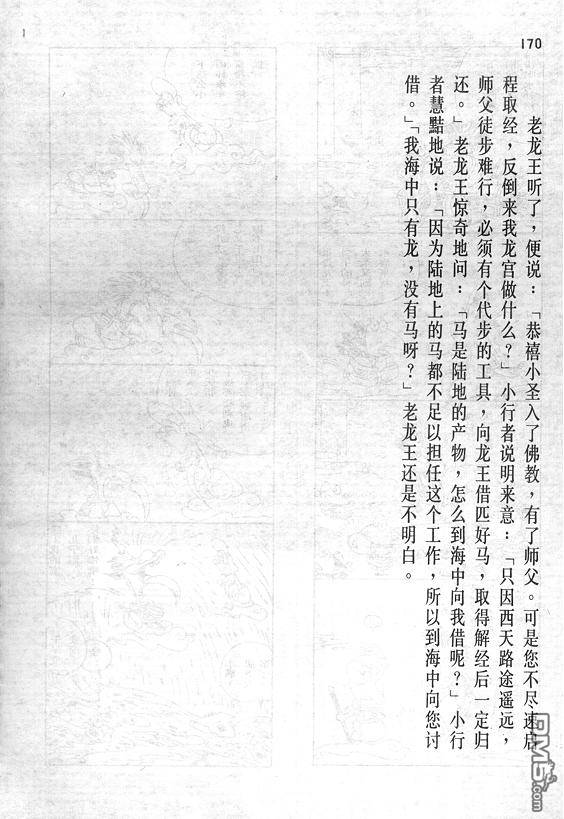 170
老龙王听了，便说：「恭禧小圣入了佛教，有了师父。可是您不尽速启
程取经，反倒来我龙宫做什么？」小行者说明来意：「只因西天路途遥远，
师父徒步难行，必须有个代步的工具，向龙王借匹好马，取得解经后一定归
还。」老龙王惊奇地问：「马是陆地的产物，怎么到海中向我借呢？」小行
者慧黠地说：「因为陆地上的马都不足以担任这个工作，所以到海中向您讨
借。」「我海中只有龙，没有马呀？」老龙王还是不明白。
DM5.com